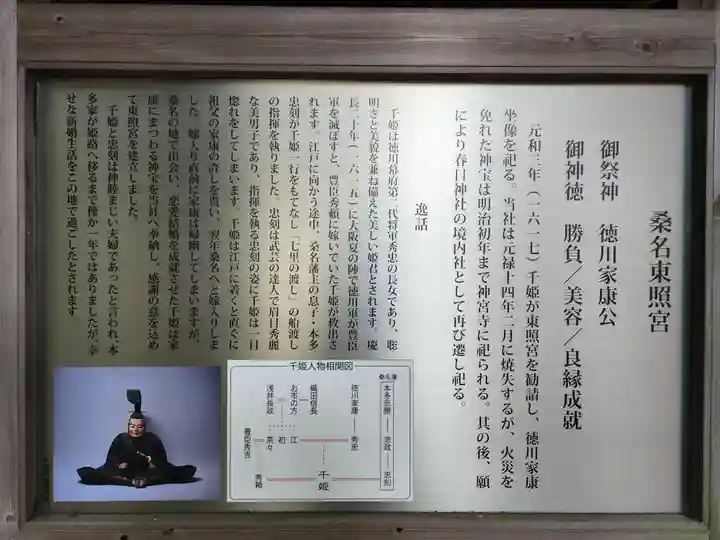 桑名東照宮
御祭神　徳川家康公
御神徳　勝負／美容／良縁成就
元和三年（一六一七）千姫が東照宮を勧請し、徳川家康
坐像を祀る。当社は元禄十四年二月に焼失するが、火災を
免れた神宝は明治初年まで神宮寺に祀られる。其の後、願
により春日神社の境内社として再び遷し祀る。
逸話
千姫は徳川幕府第二代将軍秀忠の長女であり、聡
明さと美貌を兼ね備えた美しい姫君とされます。慶
長二十年（一六一五）に大阪夏の陣で徳川軍が豊臣
軍を滅ぼすと、豊臣秀頼に嫁いでいた千姫が救出さ
れます。江戸に向かう途中、桑名藩主の息子・本多
忠刻が千姫一行をもてなし「七里の渡し」の船渡し
の指揮を執りました。忠刻は武芸の達人で眉目秀麗
な美男子であり、指揮を執る忠刻の姿に千姫は一目
惚れをしてしまいます。千姫は江戸に着くと直ぐに
祖父の家康の許しを貰い、翌年桑名へと嫁入りしま
した。嫁入り直前に家康は帰幽してしまいますが、
桑名の地で出会い、恋愛結婚を成就させた千姫は家
康にまつわる神宝を当社へ奉納し、感謝の意を込め
て東照宮を建立しました。
千姫と忠刻は仲睦まじい夫婦であったと言われ、本
多家が姫路へ移るまで僅か一年ではありましたが、幸
せな新婚生活をこの地で過ごしたとされます
千姫人物相関図
桑名藩
本多忠勝
忠政
忠刻
徳川家康
秀忠
千姫
織田信長
お市の方
江
初
茶々
浅井長政
豊臣秀吉
秀頼